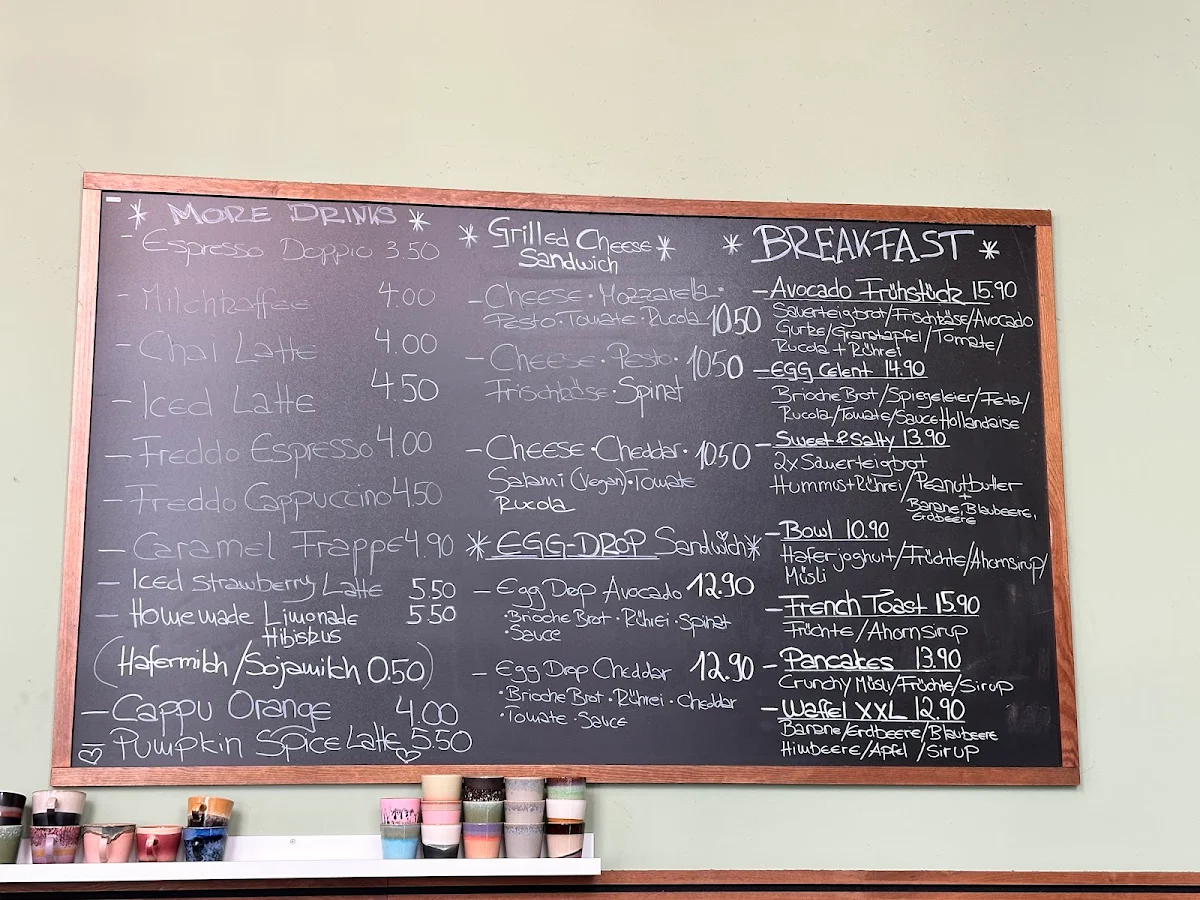 * MORE DRINKS *
- Espresso Doppio 3.50
- Milchkaffee 4.00
- Chai Latte 4.00
- Iced Latte 4.50
- Freddo Espresso 4.00
- Freddo Cappuccino 4.50
- Caramel Frappe 4.90
- Iced Strawberry Latte 5.50
- Homemade Limonade 5.50
Hibiskus
(Hafermilch/Sojamilch 0.50)
- Cappu Orange 4.00
- Pumpkin Spice Latte 5.50
* Grilled Cheese *
Sandwich
- Cheese · Mozzarella ·
Pesto · Tomate · Rucola 10.50
- Cheese · Pesto · 10.50
Frischkäse · Spinat
- Cheese · Cheddar · 10.50
Salami (Vegan) · Tomate
Rucola
* EGG-DROP Sandwich *
- Egg Drop Avocado 12.90
· Brioche Brot · Rührei · Spinat
· Sauce
- Egg Drop Cheddar 12.90
· Brioche Brot · Rührei · Cheddar
· Tomate · Sauce
* BREAKFAST *
- Avocado Frühstück 15.90
Sauerteigbrot/Frischkäse/Avocado
Gurke/Granatapfel/Tomate/
Rucola + Rührei
- EGG Celent 14.90
Brioche Brot/Spiegeleier/Feta/
Rucola/Tomate/Sauce Hollandaise
- Sweet & Salty 13.90
2x Sauerteigbrot
Hummus + Rührei/Peanutbutter
+
Banane, Blaubeere,
Erdbeere
- Bowl 10.90
Haferjoghurt/Früchte/Ahornsirup/
Müsli
- French Toast 15.90
Früchte/Ahornsirup
- Pancakes 13.90
Crunchy Müsli/Früchte/Sirup
- Waffel XXL 12.90
Banane/Erdbeere/Blaubeere
Himbeere/Apfel/Sirup